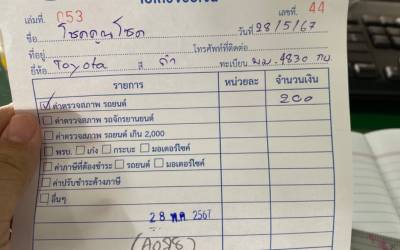 เล่มที่ 053 เลขที่ 44
ชื่อ โชคคูณโชค วันที่ 28/5/67
ที่อยู่ โทรศัพท์ที่ติดต่อ
ยี่ห้อ Toyota สี ดำ ทะเบียน 4830
รายการ หน่วยละ จำนวนเงิน
ค่าตรวจสภาพ รถยนต์ 200
ค่าตรวจสภาพ รถจักรยานยนต์
ค่าตรวจสภาพ รถยนต์ เกิน 2,000
พรบ. เก๋ง กระบะ มอเตอร์ไซค์
ค่าภาษีที่ต้องชำระ รถยนต์ มอเตอร์ไซค์
ค่าปรับชำระล้างภาษี
อื่นๆ
28 พ.ค. 2567